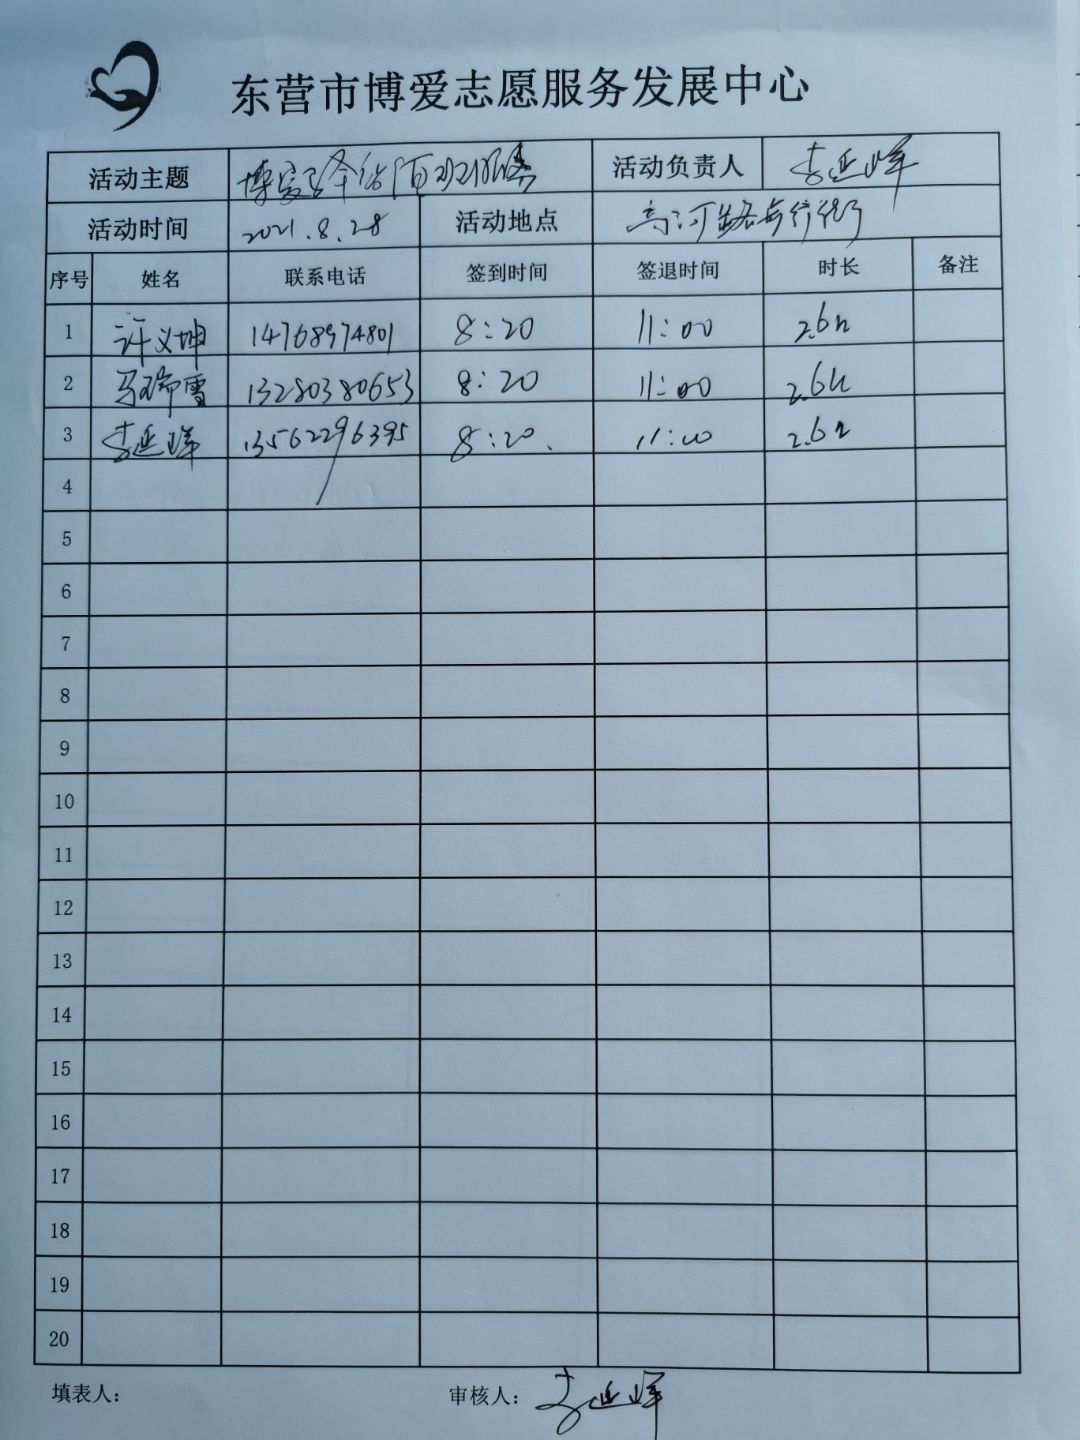 东营市博爱志愿服务发展中心
活动主题 博爱 服务 活动负责人 李延峰
活动时间 2021.8.28 活动地点 步行街
序号 姓名 联系电话 签到时间 签退时间 时长 备注
1 许义坤 14768974801 8:20 11:00 2.6h
2 马瑞雪 13280380653 8:20 11:00 2.6h
3 李延峰 13562296395 8:20. 11:00 2.6h
4
5
6
7
8
9
10
11
12
13
14
15
16
17
18
19
20
填表人： 审核人：李延峰